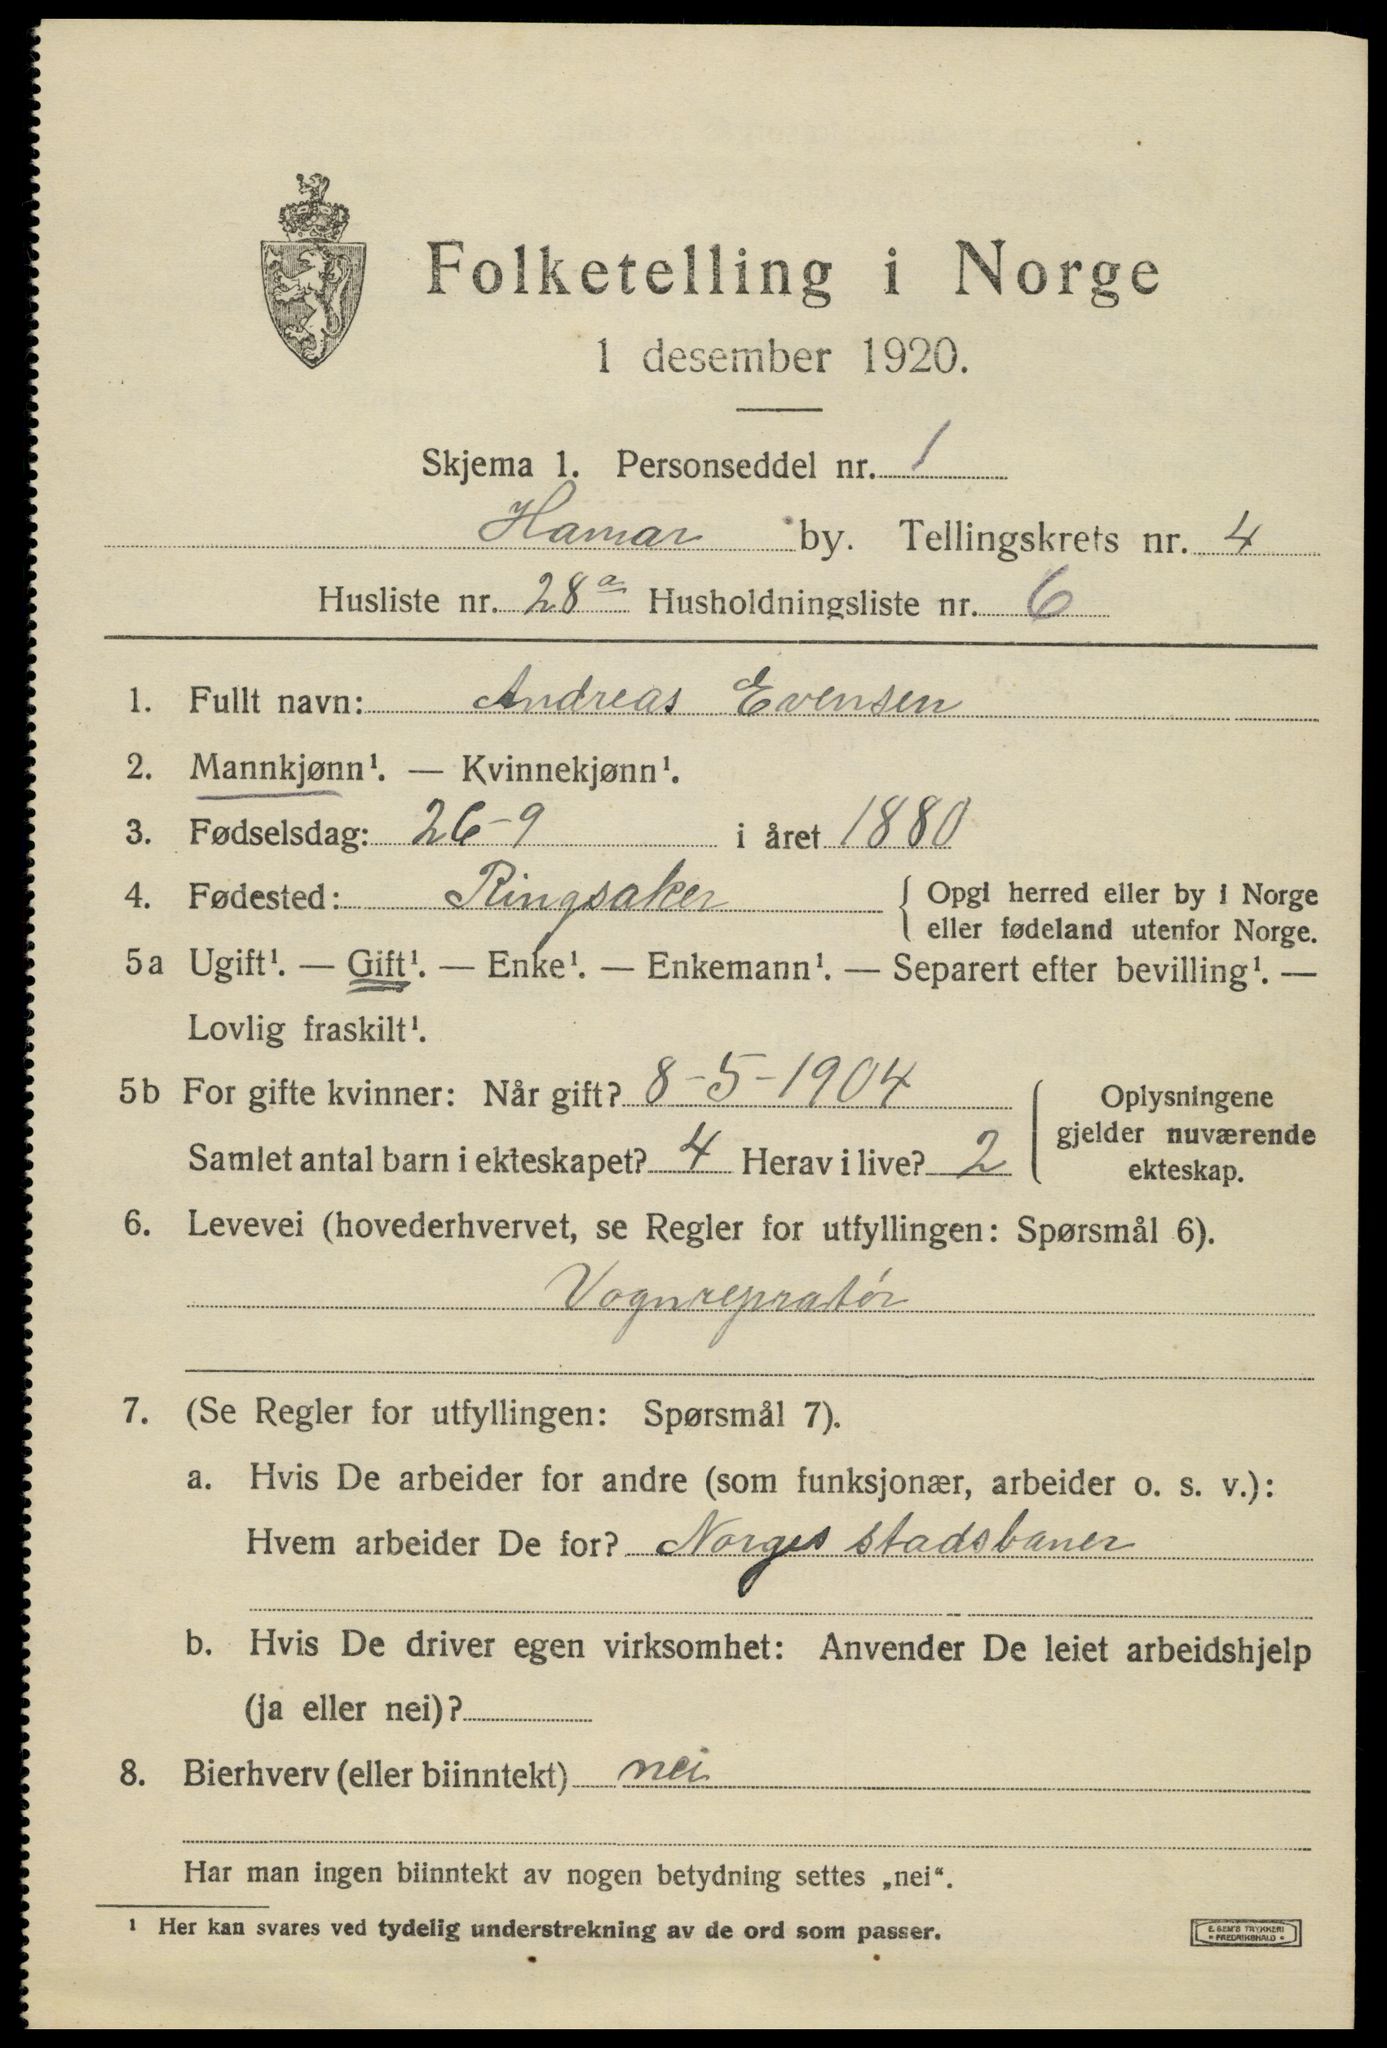 Folketelling i Norge
1 desember 1920.
Skjema 1. Personseddel nr. 1
Hamar by. Tellingskrets nr. 4
Husliste nr. 28a Husholdningsliste nr. 6
1. Fullt navn: Andreas Evensen
2. Mannkjønn¹. — Kvinnekjønn¹.
3. Fødselsdag: 26-9 i året 1880
4. Fødested: Ringsaker { Opgi herred eller by i Norge
eller fødeland utenfor Norge.
5a Ugift¹. — Gift¹. — Enke¹. — Enkemann¹. — Separert efter bevilling¹. —
Lovlig fraskilt¹.
5b For gifte kvinner: Når gift? 8-5-1904
Samlet antal barn i ekteskapet? 4 Herav i live? 2
Oplysningene
gjelder nuværende
ekteskap.
6. Levevei (hovederhvervet, se Regler for utfyllingen: Spørsmål 6).
Vognrepratør
7. (Se Regler for utfyllingen: Spørsmål 7).
a. Hvis De arbeider for andre (som funksjonær, arbeider o. s. v.):
Hvem arbeider De for? Norges stadsbaner
b. Hvis De driver egen virksomhet: Anvender De leiet arbeidshjelp
(ja eller nei)?
8. Bierhverv (eller biinntekt) nei
Har man ingen biinntekt av nogen betydning settes „nei“.
¹ Her kan svares ved tydelig understrekning av de ord som passer.
E. SEM'S TRYKKERI
• FREDRIKSHALD •